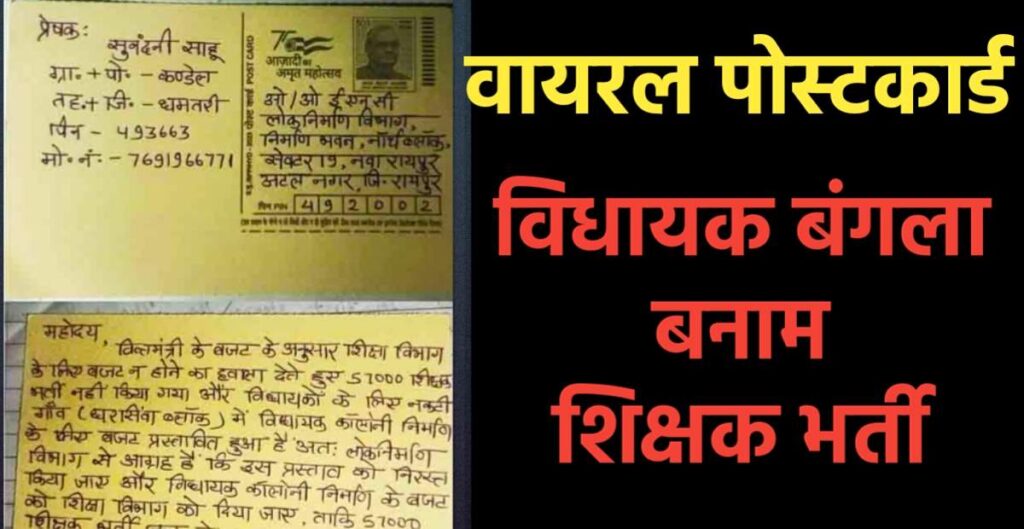 प्रेषक:
सुनंदनी साहू
ग्रा॰ + पो॰ - कण्डेल
तह॰ + जि॰ - धमतरी
पिन - 493663
मो॰ नं॰ - 7691966771
पोस्ट कार्ड POST CARD
75
आज़ादी का
अमृत महोत्सव
ओ/ओ ईएनसी
लोकनिर्माण विभाग,
निर्माण भवन, नार्थ ब्लॉक,
सेक्टर 19, नवा रायपुर
अटल नगर, जि॰ रायपुर
पिन PIN 492002
महोदय,
वित्तमंत्री के बजट के अनुसार शिक्षा विभाग
के लिए बजट न होने का हवाला देते हुए 57000 शिक्षक
भर्ती नहीं किया गया और विधायकों के लिए नकटी
गाँव (धरसींवा ब्लॉक) में विधायक कॉलोनी निर्माण
के लिए बजट प्रस्तावित हुआ है अतः लोकनिर्माण
विभाग से आग्रह है कि इस प्रस्ताव को निरस्त
किया जाए और विधायक कॉलोनी निर्माण के बजट
को शिक्षा विभाग को दिया जाए, ताकि 57000
शिक्षक भर्ती
वायरल पोस्टकार्ड
विधायक बंगला
बनाम
शिक्षक भर्ती